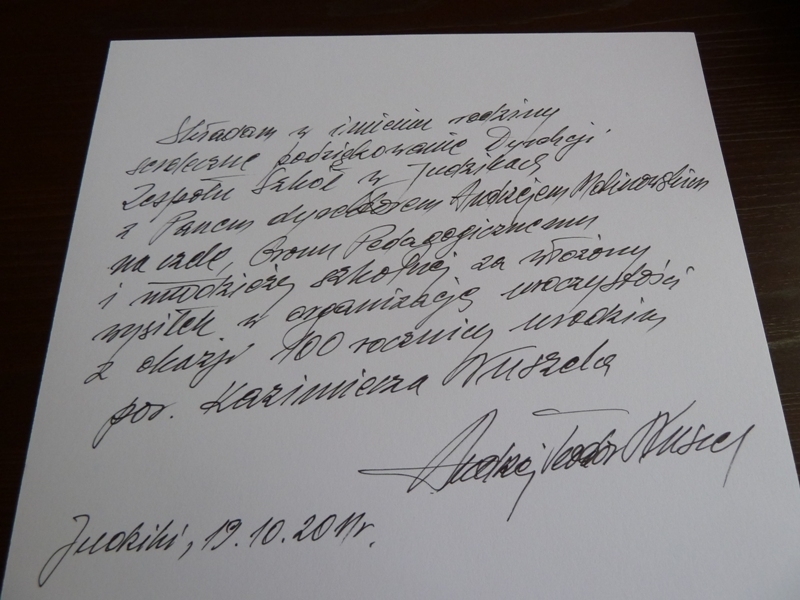 Składam w imieniu rodziny
serdeczne podziękowanie Dyrekcji
Zespołu Szkół w Judzikach
z Panem dyrektorem Andrzejem Malinowskim
na czele, Gronu Pedagogicznemu
i młodzieży szkolnej za włożony
wysiłek w organizację uroczystości
z okazji 100 rocznicy urodzin
por. Kazimierza
Andrzej
Judziki, 19.10.2011r.